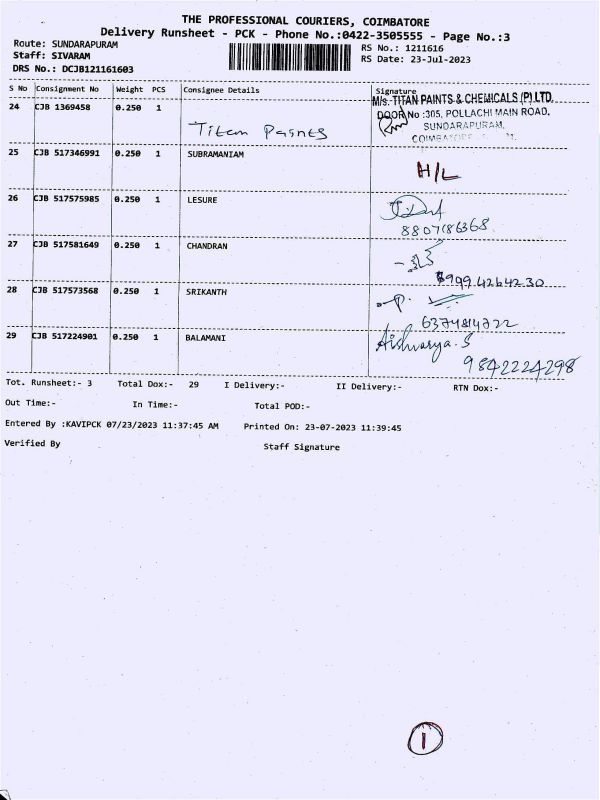 THE PROFESSIONAL COURIERS, COIMBATORE
Delivery Runsheet - PCK - Phone No.:0422-3505555 - Page No.:3
Route: SUNDARAPURAM
RS No.: 1211616
Staff: SIVARAM
RS Date: 23-Jul-2023
DRS No.: DCJB121161603
S No Consignment No Weight PCS Consignee Details Signature
M/s. TITAN PAINTS & CHEMICALS (P) LTD.
24 CJB 1369458 0.250 1
DOOR No :305, POLLACHI MAIN ROAD,
SUNDARAPURAM,
Titan Paints
25 CJB 517346991 0.250 1 SUBRAMANIAM
H/L
26 CJB 517575985 0.250 1 LESURE
8807186368
27 CJB 517581649 0.250 1 CHANDRAN
9994264230
28 CJB 517573568 0.250 1 SRIKANTH
29 CJB 517224901 0.250 1 BALAMANI
Aishwarya.S
9842224298
Tot. Runsheet:- 3 Total Dox:- 29 I Delivery:- II Delivery:- RTN Dox:-
Out Time:- In Time:- Total POD:-
Entered By :KAVIPCK 07/23/2023 11:37:45 AM Printed On: 23-07-2023 11:39:45
Verified By Staff Signature
1